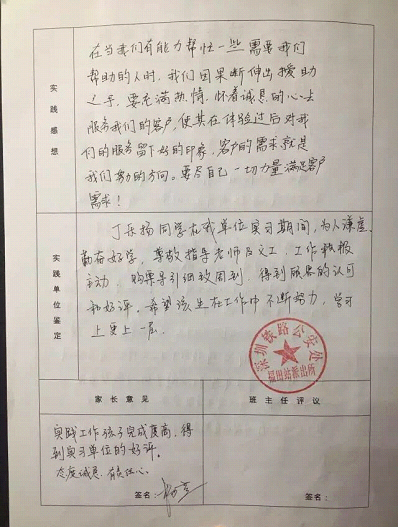 实践感想
在当我们有能力帮忙一些需要我们
帮助的人时，我们因果断伸出援助
之手，要充满热情，怀着诚恳的心去
服务我们的客户，使其在体验过后对我
们的服务留下好的印象，客户的需求就是
我们努力的方向。要尽自己一切力量满足客户
需求！
实践单位鉴定
丁乐扬同学在我单位实习期间，为人谦虚，
勤奋好学，尊敬指导老师及义工，工作积极
主动，购票导引细致周到，得到顾客的认可
和好评。希望该生在工作中不断努力，学习
上更上一层。
深圳铁路公安处
福田站派出所
家长意见
班主任评议
实践工作孩子完成度高，得
到实习单位的好评。
态度诚恳，有责任心。
签名：
签名：